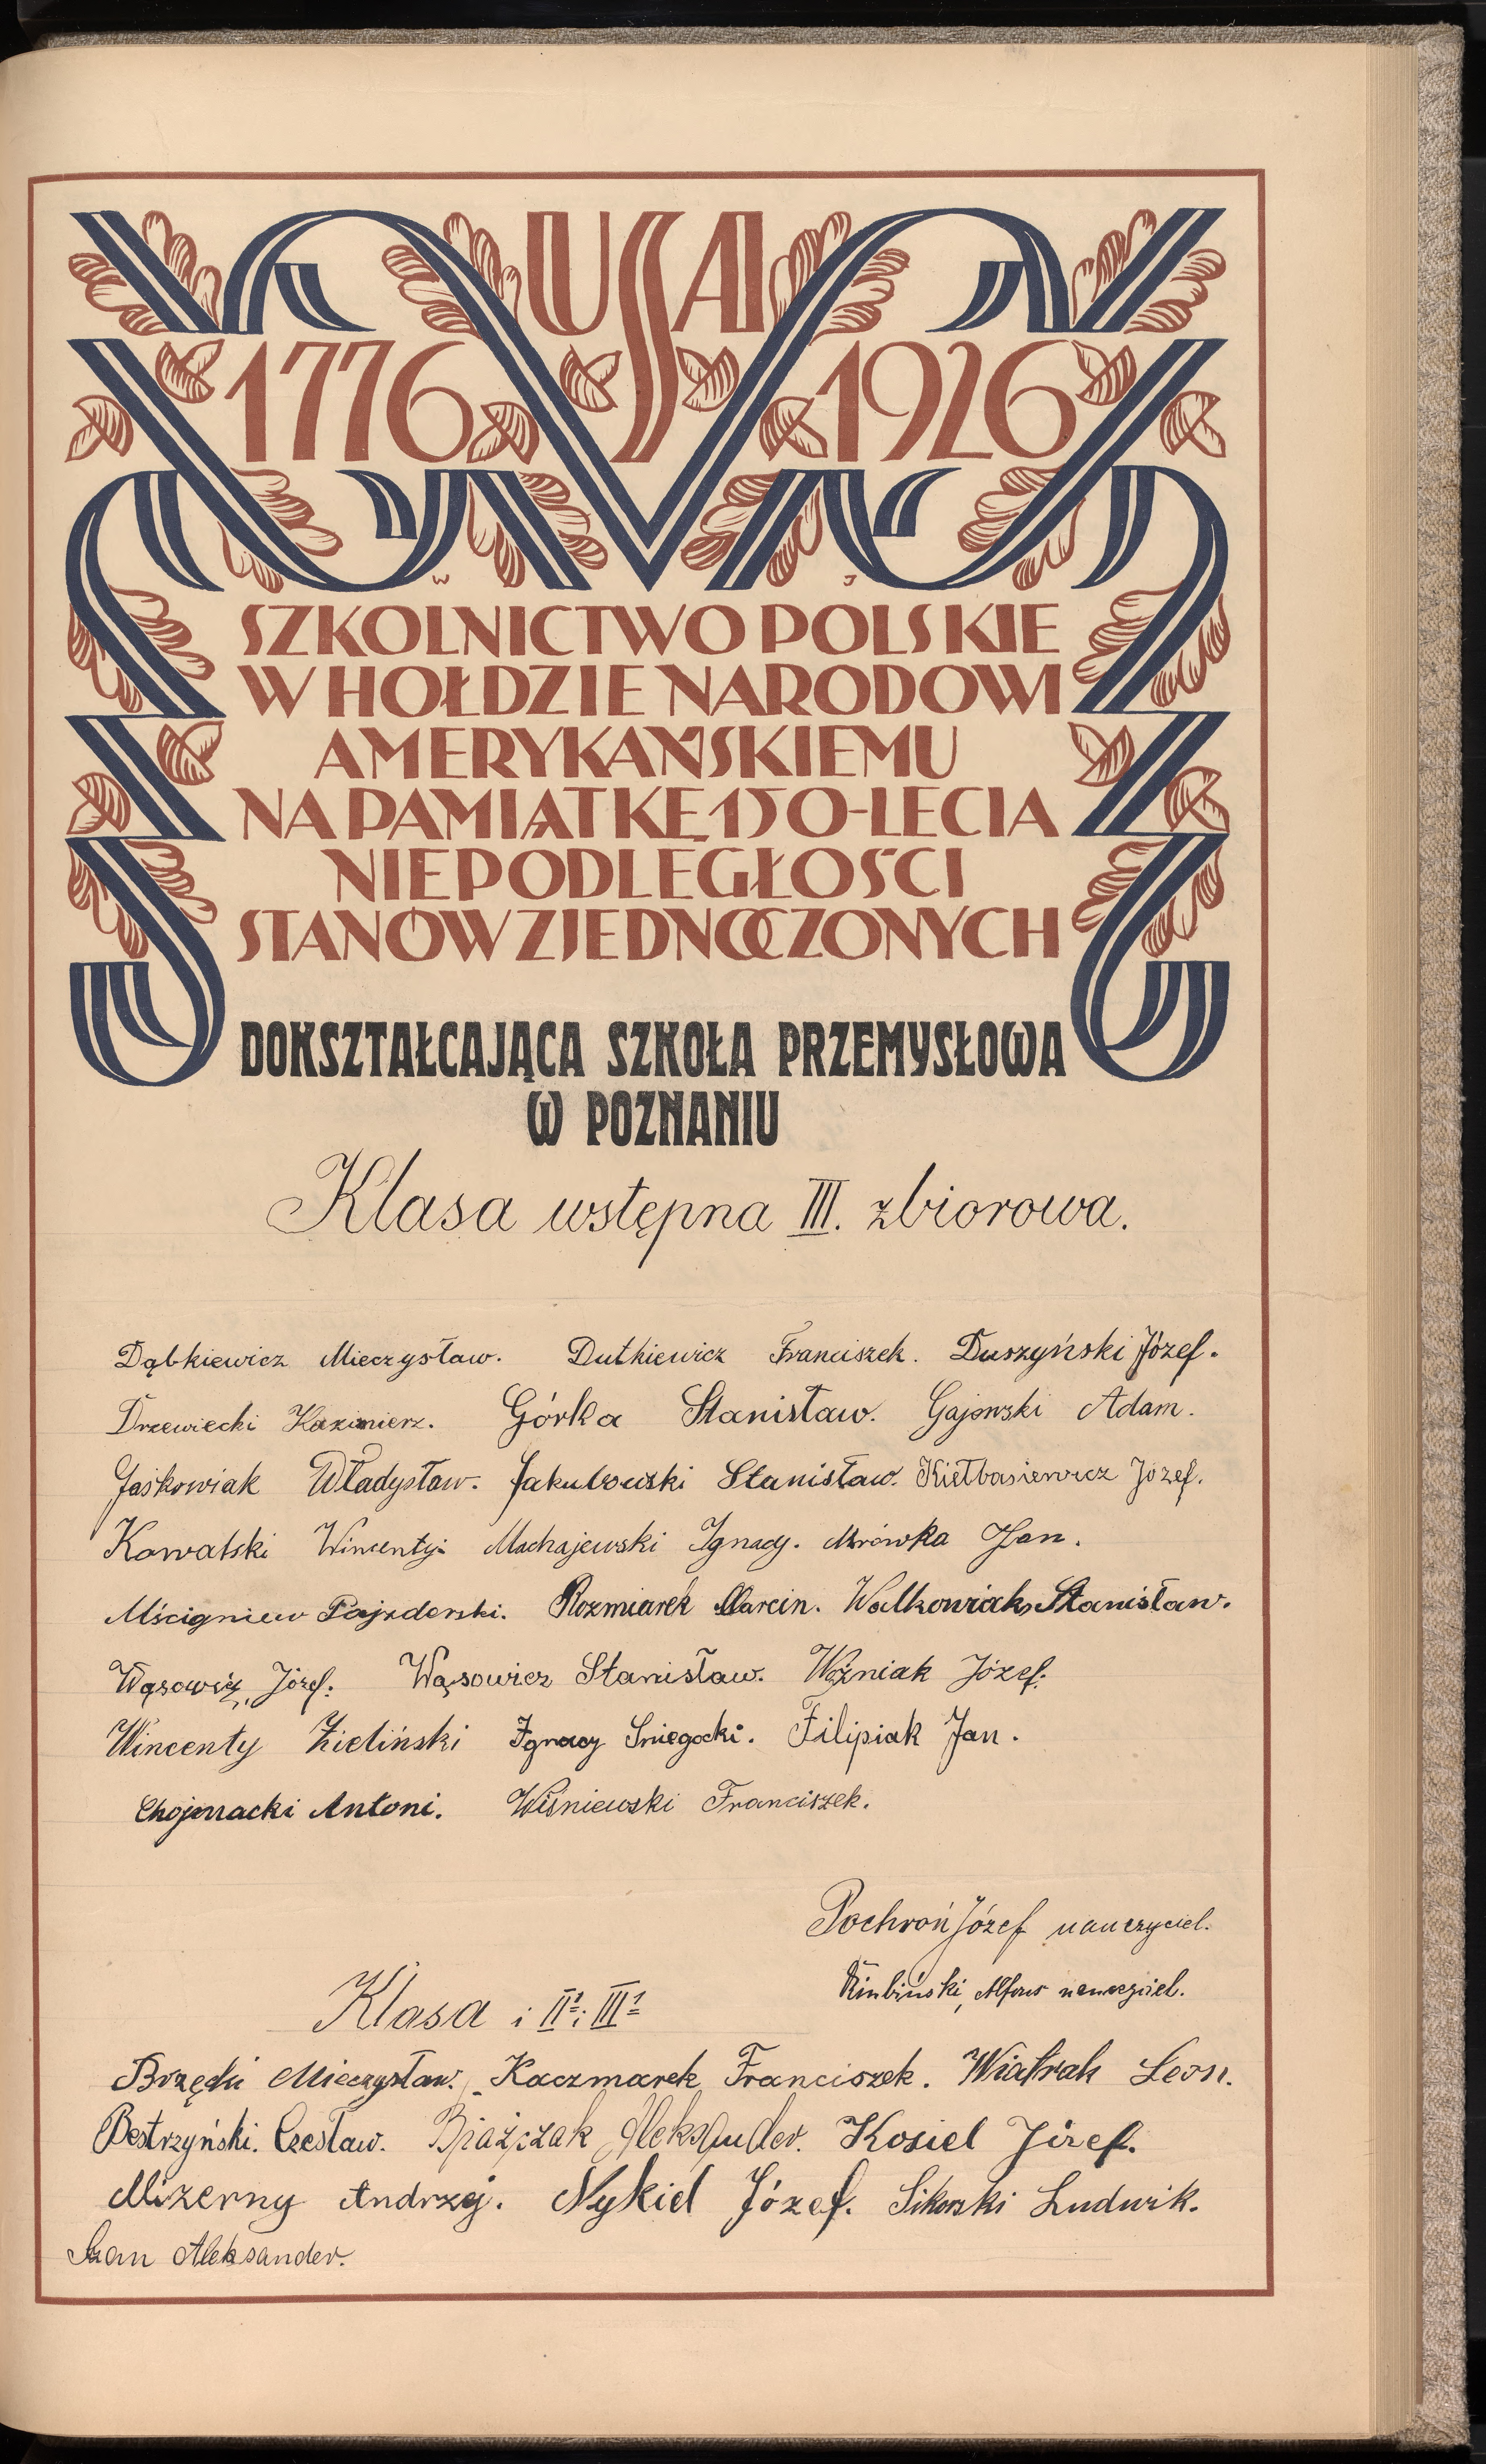 USA
1776 1926
W J
SZKOLNICTWO POLSKIE
W HOŁDZIE NARODOWI
AMERYKAŃSKIEMU
NA PAMIĄTKĘ 150-LECIA
NIEPODLEGŁOŚCI
STANÓW ZJEDNOCZONYCH
DOKSZTAŁCAJĄCA SZKOŁA PRZEMYSŁOWA
W POZNANIU
Klasa wstępna III. zbiorowa.
Dąbkiewicz Mieczysław. Dutkiewicz Franciszek. Duszyński Józef.
Drzewiecki Kazimierz. Górka Stanisław. Gajewski Adam.
Jaśkowiak Władysław. Jakubowski Stanisław. Kiełbasiewicz Józef.
Kowalski Wincenty. Machajewski Ignacy. Mrówka Jan.
Mścigniew Pajzderski. Rozmiarek Marcin. Walkowiak Stanisław.
Wąsowicz, Józef. Wąsowicz Stanisław. Woźniak Józef.
Wincenty Zieliński Ignacy Śniegocki. Filipiak Jan.
Chojnacki Antoni. Wiśniewski Franciszek.
Pochroń Józef nauczyciel.
Alfons nauczyciel.
Klasa i II¹ i III¹
Mieczysław. Kaczmarek Franciszek. Wiatrak Leon.
Bestrzyński. Czesław. Aleksander. Kosiel Józef.
Mizerny Andrzej. Nykiel Józef. Sikorski Ludwik.
Aleksander.